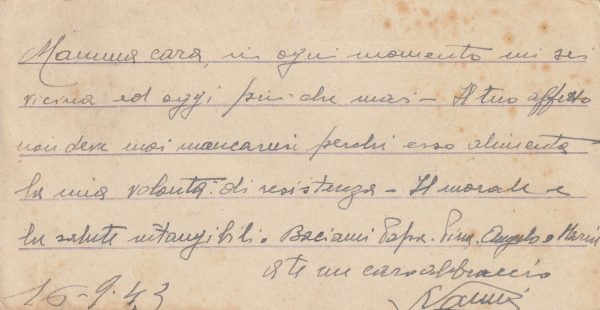 Mamma cara, in ogni momento mi sei
vicina ed oggi più che mai - Il tuo affetto
non deve mai mancarmi perchè esso alimenta
la mia volontà di resistenza - Il morale e
la salute intangibili. Baciami Papà. Pina. Angelo e Maria
a te un caro abbraccio
16-9-43